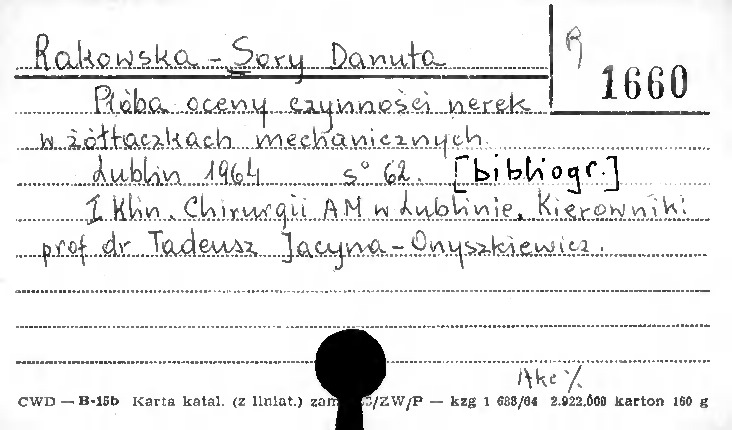 Rakowska-Sory Danuta
R
1660
Płóba oceny czynności nerek
w żółtaczkach mechanicznych.
Lublin 1964 s° 62. [bibliogr.]
I Klin. Chirurgii AM w Lublinie. Kierownik:
prof dr Tadeusz Jacyna-Onyszkiewicz.
CWD — B-15b Karta katal. (z liniat.) zam /ZW/P — kzg 1 688/64 2.922.000 karton 160 g